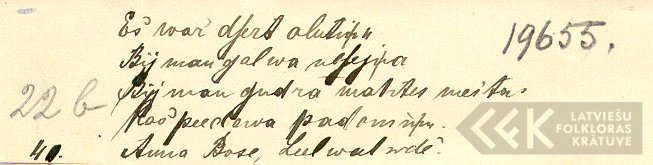 Es war dsert alutiņu
19655.
Bij man galwa nesejsa
22 b
Bij man gudrà mahtes meitas
Kas peedewa padomiņu.
40. Anna Bose, Leelwalwdē.
LATVIEŠU
FOLKLORAS
KRĀTUVE